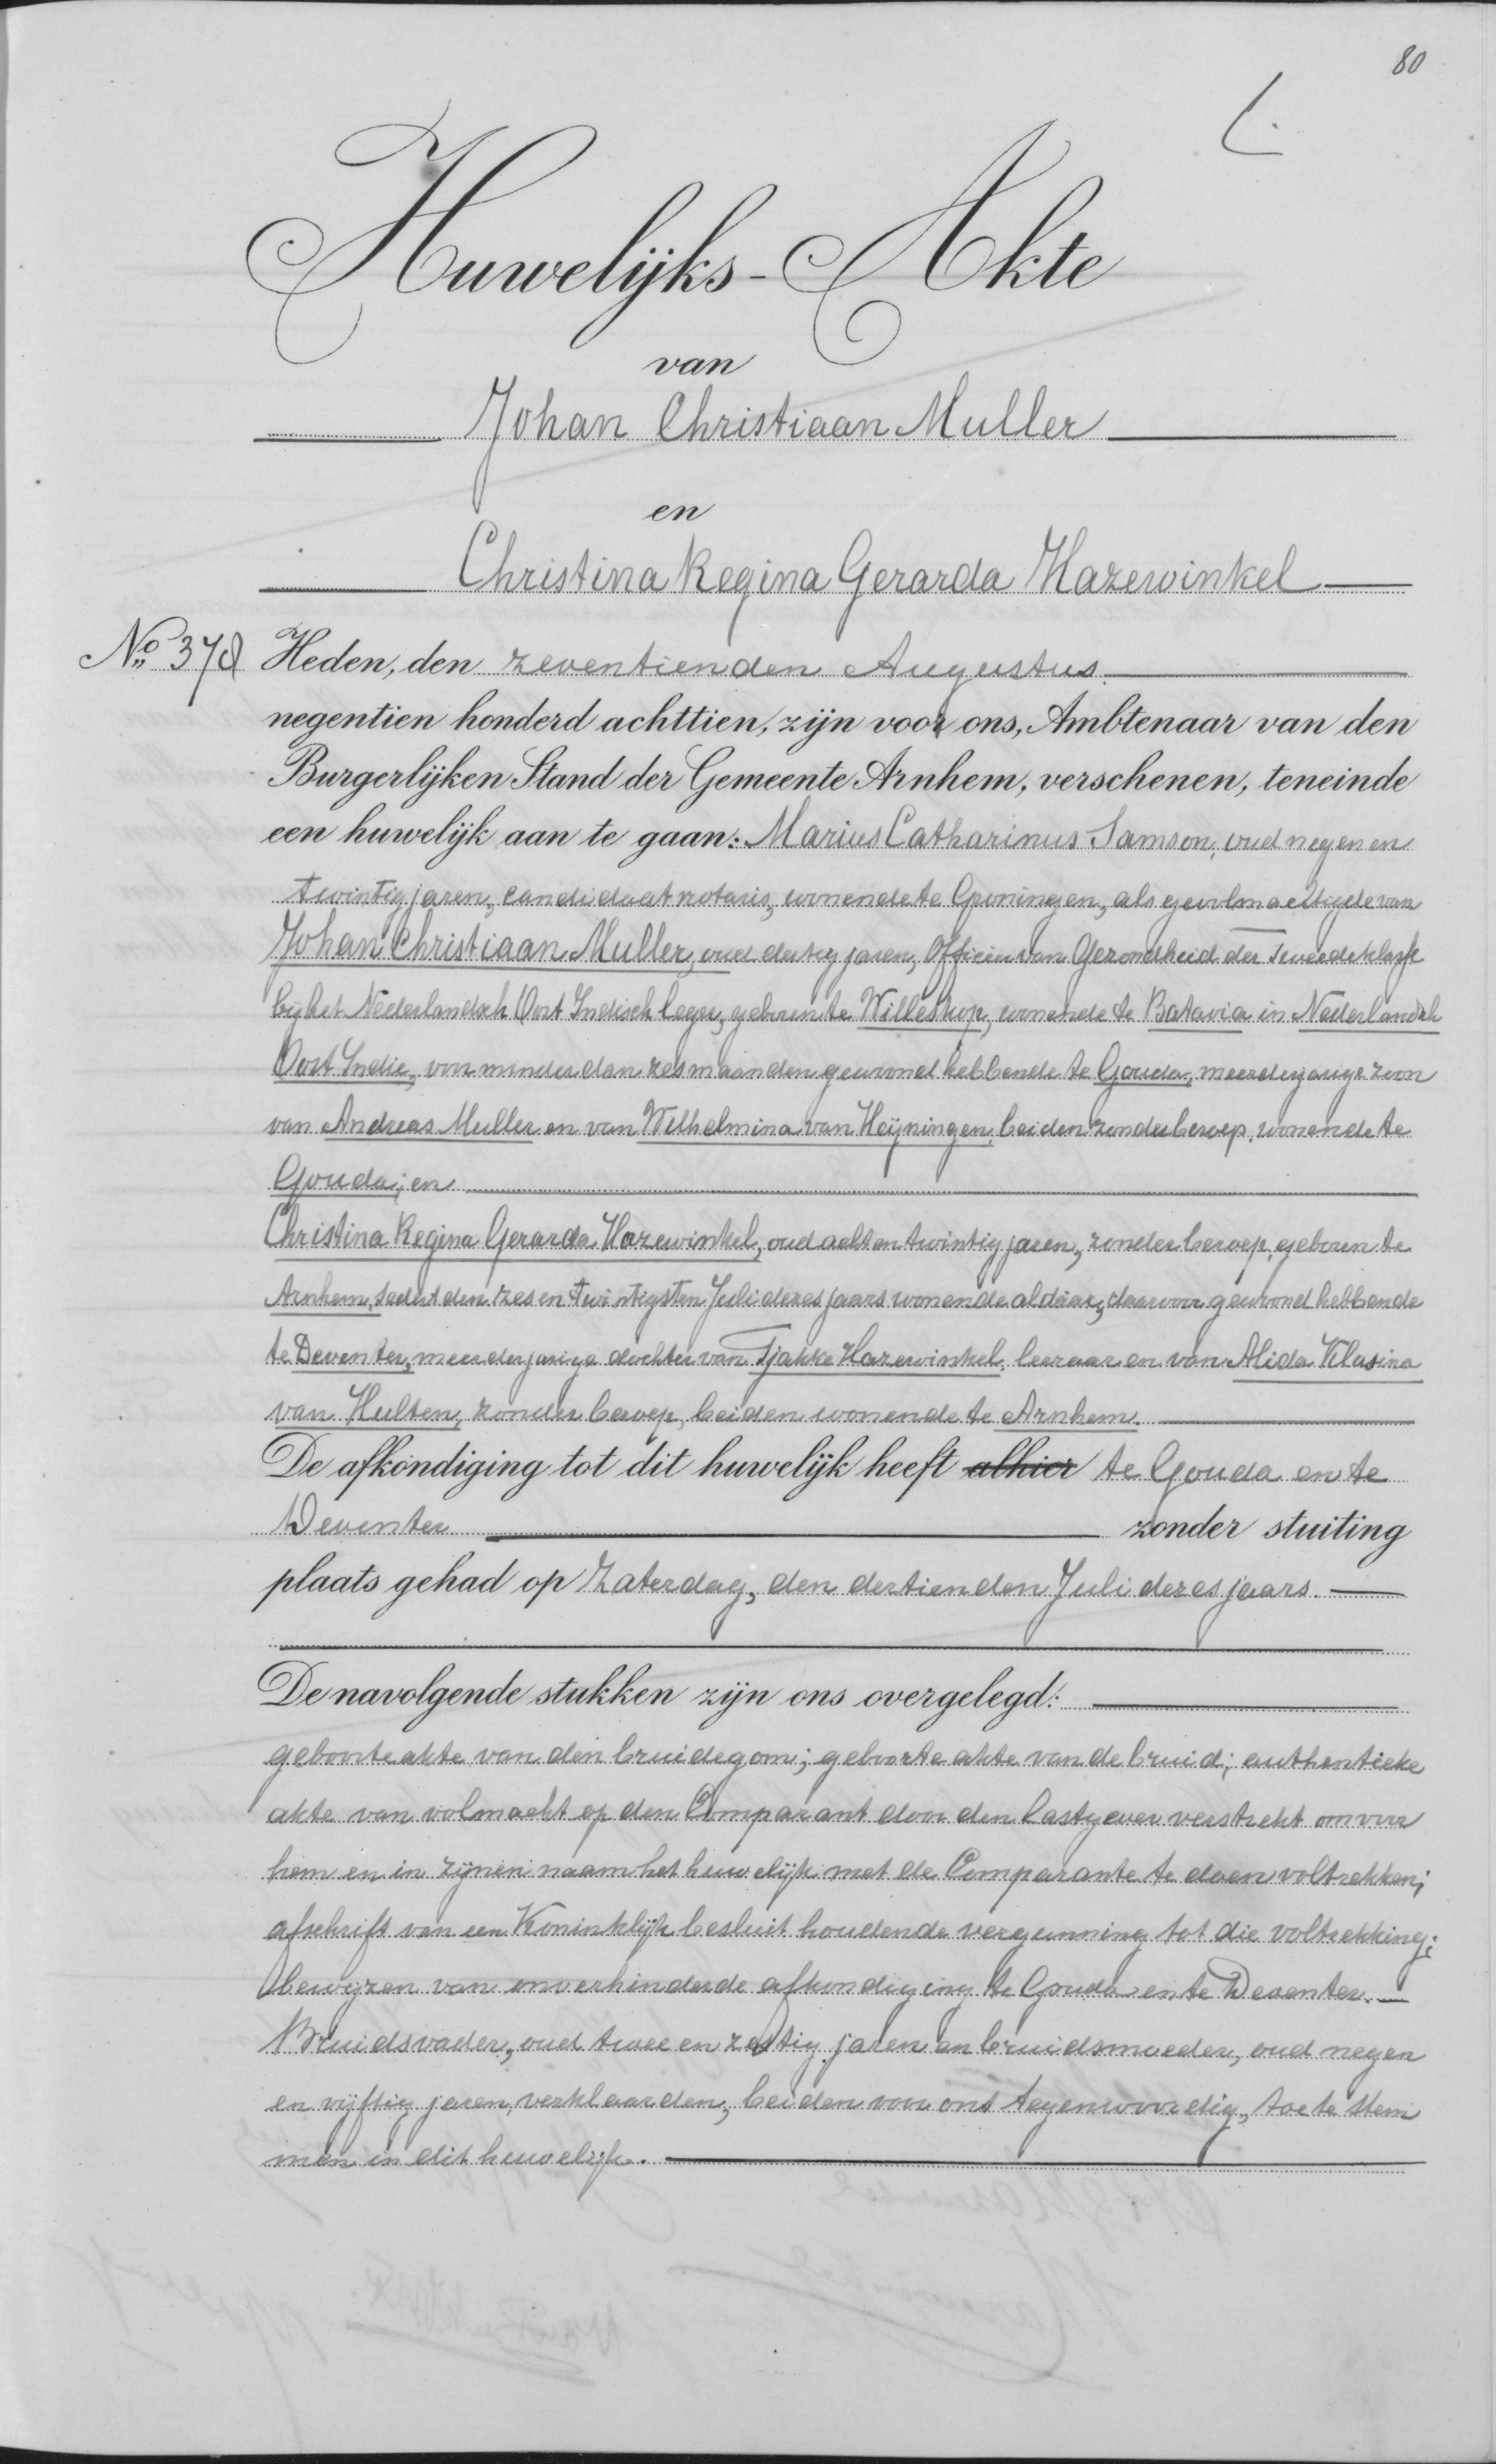 80
Huwelijks-Akte
van
Johan Christiaan Muller
en
Christina Regina Gerarda Hazewinkel
No. 378 Heden, den zeventienden Augustus
negentien honderd achttien, zijn voor ons, Ambtenaar van den
Burgerlijken Stand der Gemeente Arnhem, verschenen, teneinde
een huwelijk aan te gaan: Marius Catharinus Samson, oud negen en
twintig jaren, candidaat notaris, wonende te Groningen, als gevolmachtigde van
Johan Christiaan Muller, oud dertig jaren, Officier van Gezondheid der Tweede klasse
bij het Nederlandsch Oost Indisch leger, geboren te Willeskop, wonende te Batavia in Nederlandsch
Oost Indie, voor minder dan zes maanden gewoond hebbende te Gouda, meerderjarige zoon
van Andreas Muller en van Wilhelmina van Heijningen, beiden zonder beroep, wonende te
Gouda; en
Christina Regina Gerarda Hazewinkel, oud acht en twintig jaren, zonder beroep, geboren te
Arnhem, sedert den zes en twintigsten Juli dezes jaars wonende aldaar, daarvoor gewoond hebbende
te Deventer, meerderjarige dochter van Tjakke Hazewinkel, leeraar en van Alida Klasina
van Hulten, zonder beroep, beiden wonende te Arnhem.
De afkondiging tot dit huwelijk heeft alhier te Gouda en te
Deventer zonder stuiting
plaats gehad op Zaterdag, den dertienden Juli dezes jaars.
De navolgende stukken zijn ons overgelegd:
geboorteakte van den bruidegom; geboorteakte van de bruid; authentieke
akte van volmacht op den Comparant door den lastgever verstrekt om voor
hem en in zijnen naam het huwelijk met de Comparante te doen voltrekken;
afschrift van een Koninklijk besluit houdende vergunning tot die voltrekking;
bewijzen van onverhinderde afkondiging te Gouda en te Deventer.
Bruidsvader, oud twee en zestig jaren en bruidsmoeder, oud negen
en vijftig jaren, verklaarden, beiden voor ons tegenwoordig, toe te stem
men in dit huwelijk.